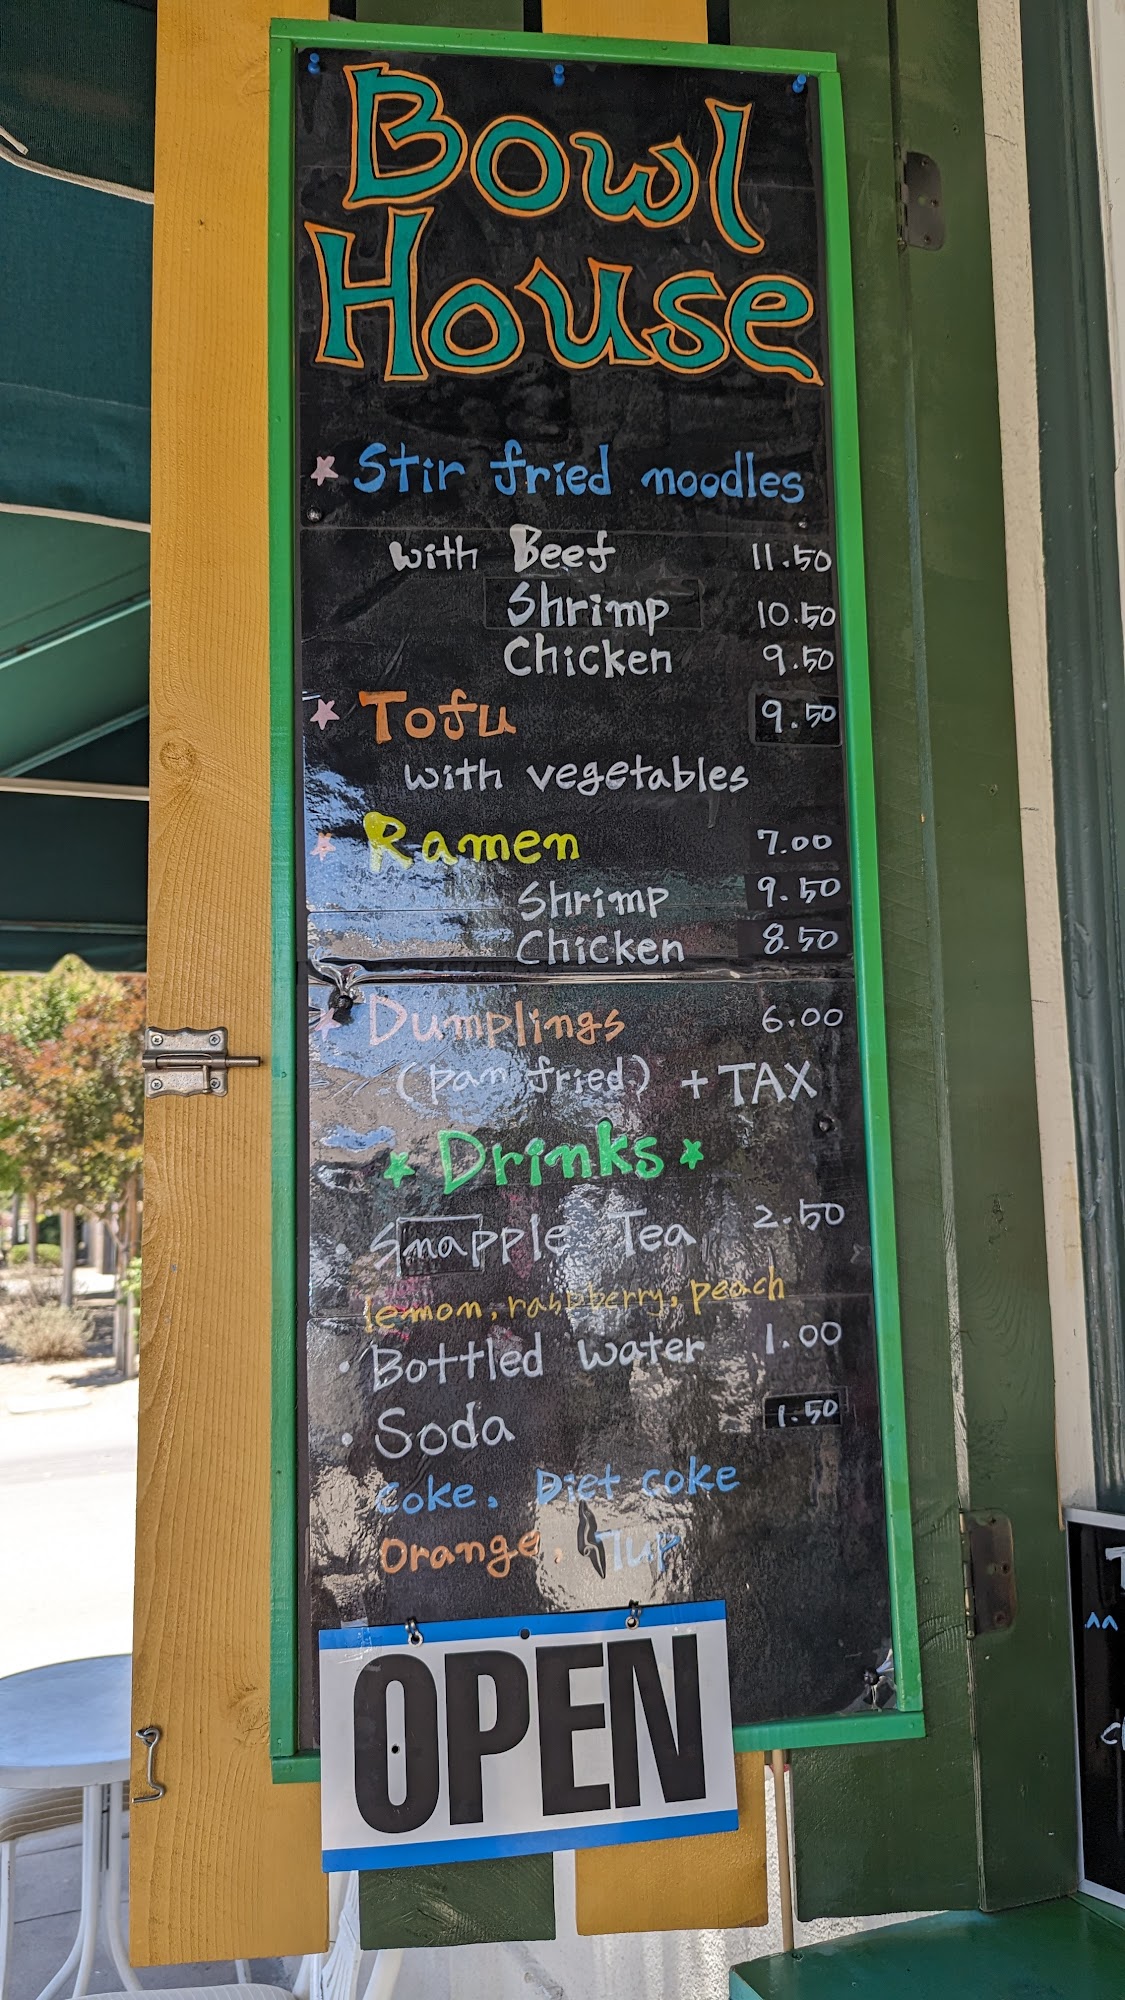 Bowl
House
Stir fried noodles
with Beef 11.50
Shrimp 10.50
Chicken 9.50
Tofu 9.50
with vegetables
Ramen 7.00
Shrimp 9.50
Chicken 8.50
Dumplings 6.00
(pan fried) + TAX
Drinks
Snapple Tea 2.50
lemon, raspberry, peach
Bottled water 1.00
Soda 1.50
Coke, Diet coke
Orange, 7up
OPEN